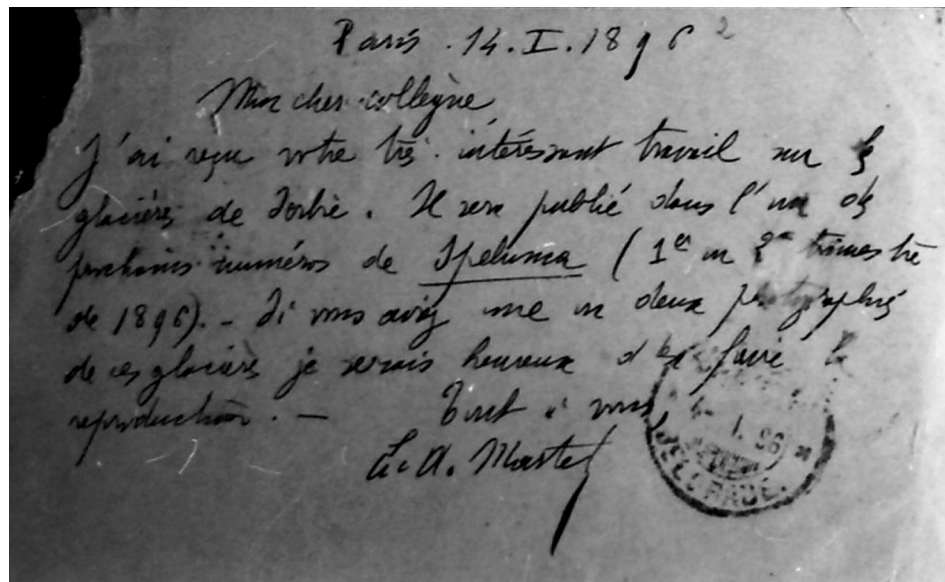 Paris . 14. I. 1896
Mon cher collègue
J'ai reçu votre très intéressant travail sur les
glacières de Serbie. Il sera publié dans l'un des
prochains numéros de Spelunca (1er ou 2e trimestre
de 1896). - Si vous aviez une ou deux photographies
de ces glacières je serais heureux d'en faire la
reproduction. - Tout à vous
E. A. Martel
I. 96
BELGRADE.